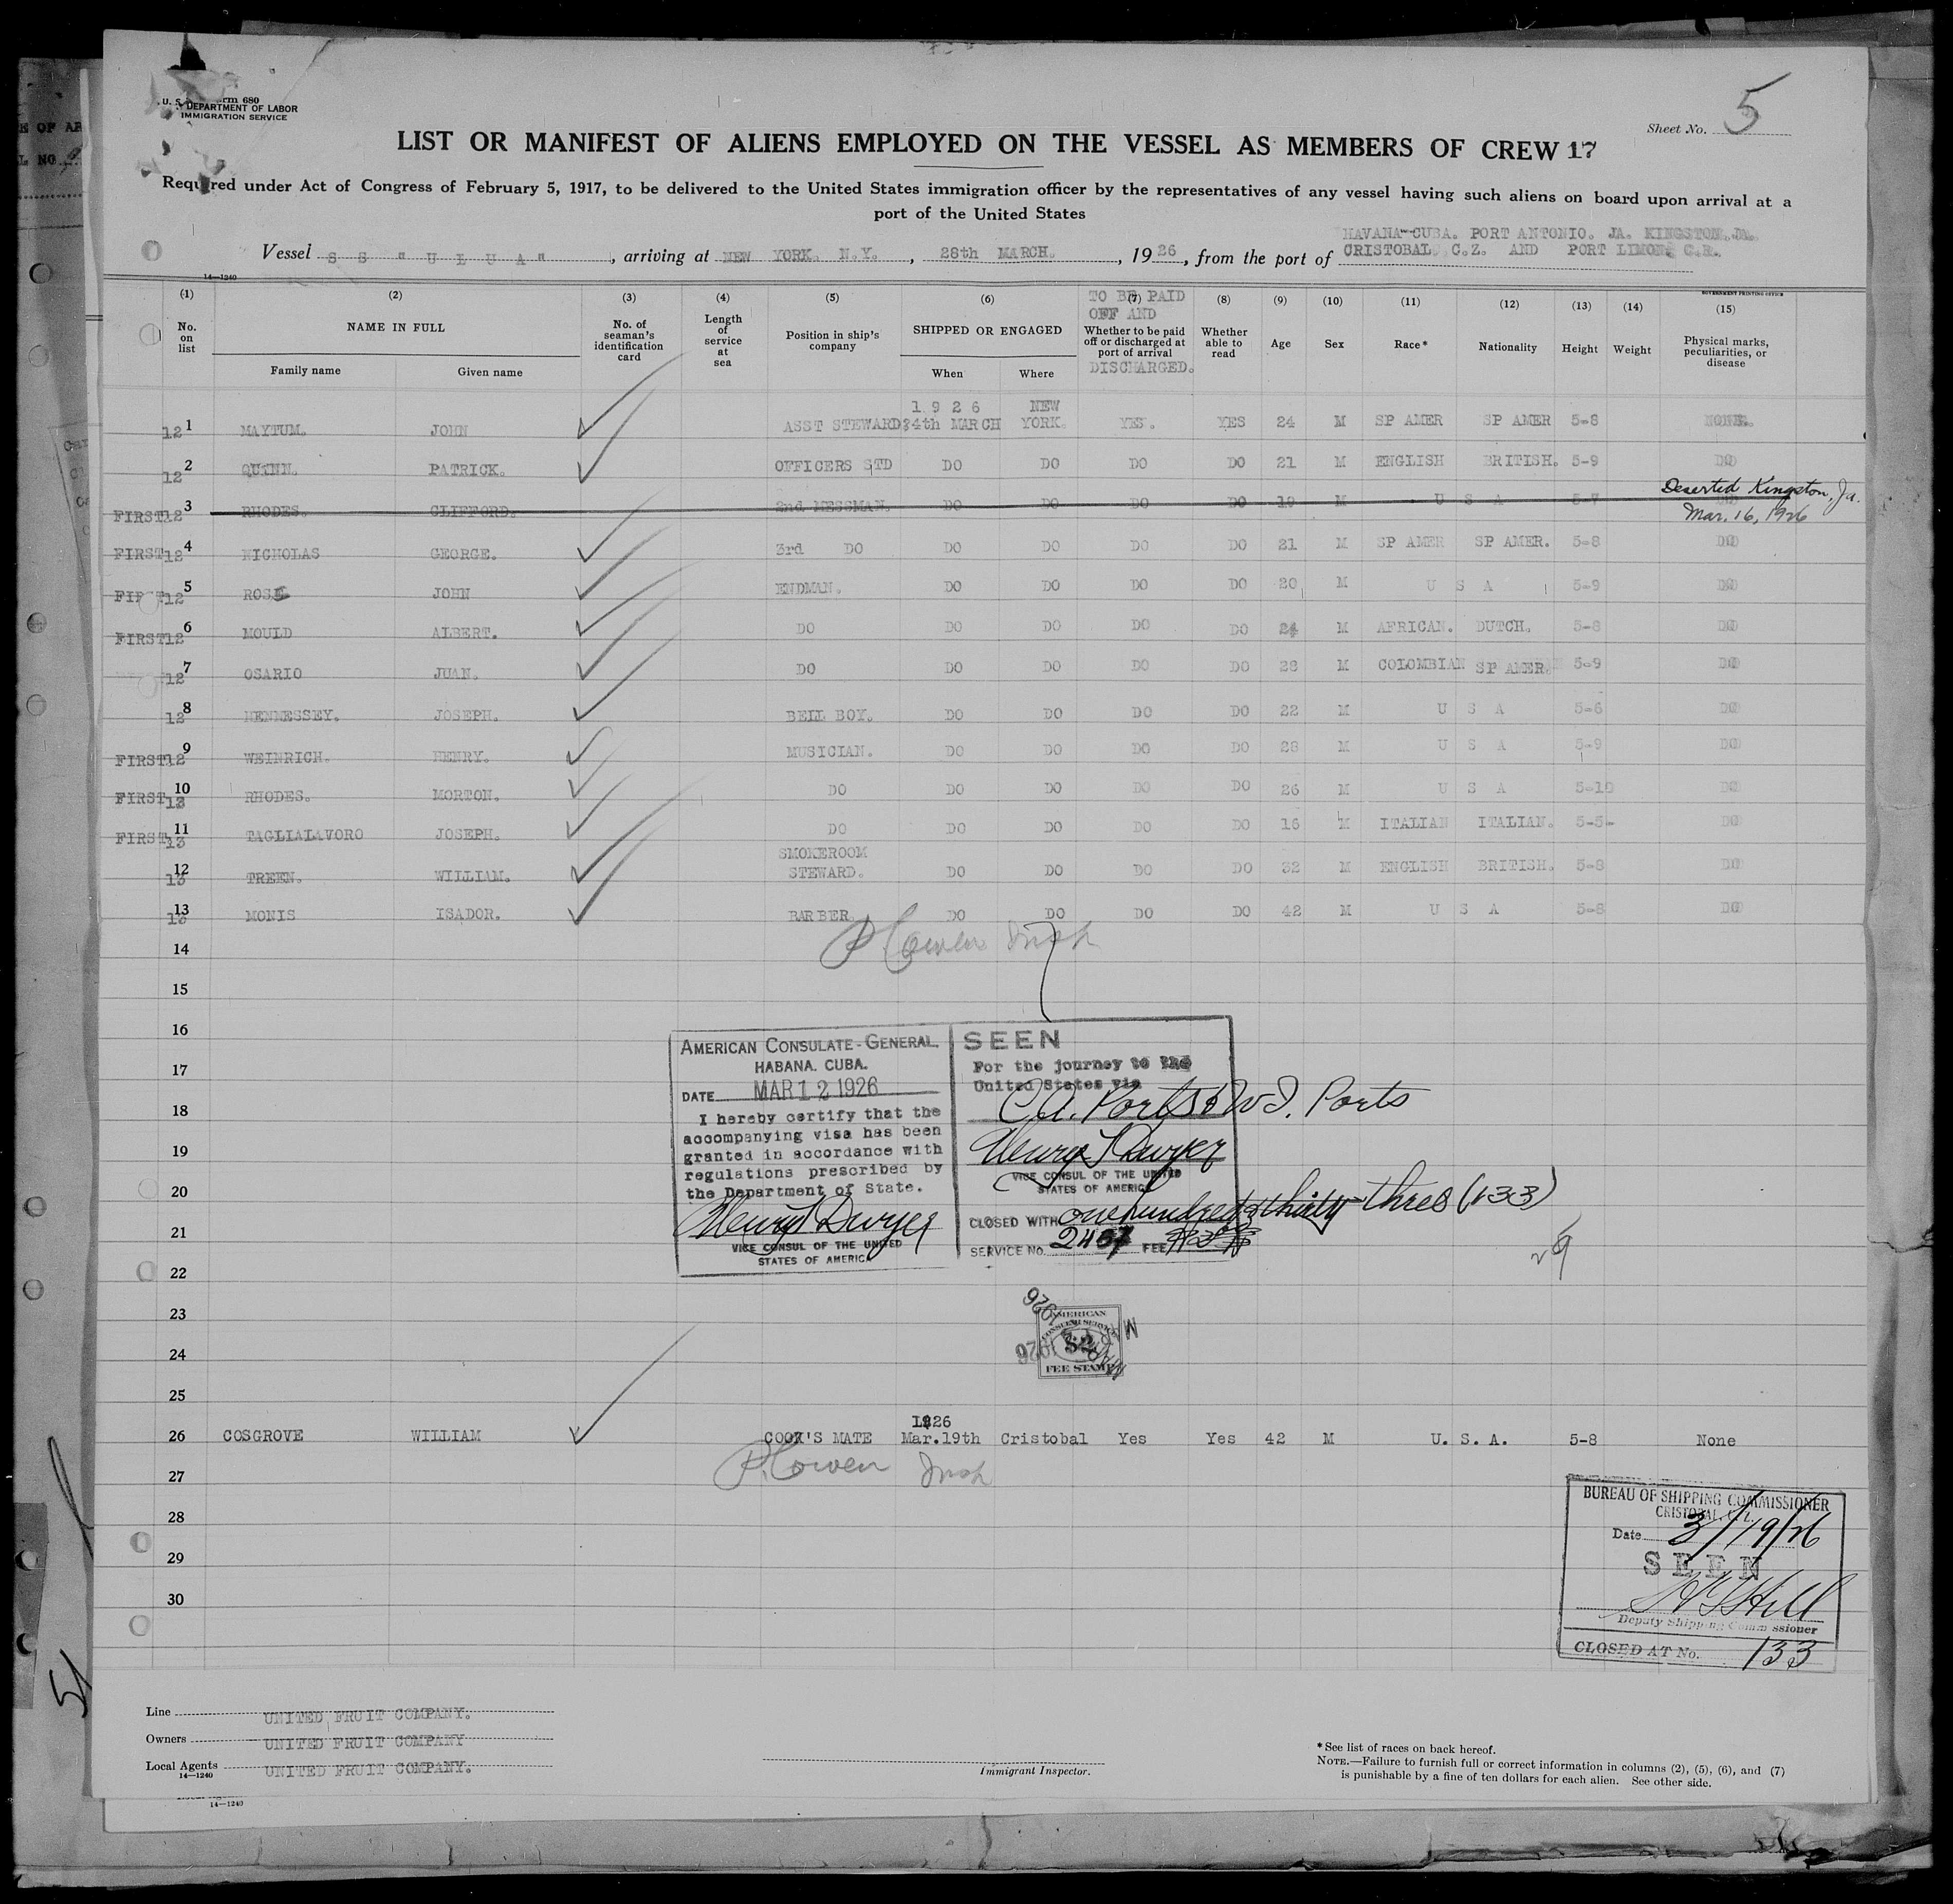 Form 680
U. S. DEPARTMENT OF LABOR
IMMIGRATION SERVICE
Sheet No. 5
LIST OR MANIFEST OF ALIENS EMPLOYED ON THE VESSEL AS MEMBERS OF CREW 17
Required under Act of Congress of February 5, 1917, to be delivered to the United States immigration officer by the representatives of any vessel having such aliens on board upon arrival at a
port of the United States
HAVANA-CUBA. PORT ANTONIO. JA. KINGSTON. JA.
Vessel S S "ULUA", arriving at NEW YORK. N.Y., 28th MARCH., 1926, from the port of CRISTOBAL C.Z. AND PORT LIMON. C.R.
14—1240
GOVERNMENT PRINTING OFFICE
(1) (2) (3) (4) (5) (6) (7) (8) (9) (10) (11) (12) (13) (14) (15)
TO BE PAID OFF AND
No. on list NAME IN FULL No. of seaman's identification card Length of service at sea Position in ship's company SHIPPED OR ENGAGED Whether to be paid off or discharged at port of arrival Whether able to read Age Sex Race* Nationality Height Weight Physical marks, peculiarities, or disease
DISCHARGED.
Family name Given name When Where
1926 NEW
12 1 MAYTUM. JOHN ASST STEWARD 24th MARCH YORK. YES. YES 24 M SP AMER SP AMER 5-8 NONE.
12 2 QUINN. PATRICK. OFFICERS STD DO DO DO DO 21 M ENGLISH BRITISH. 5-9 DO
FIRST 12 3 RHODES. CLIFFORD. 2nd MESSMAN. DO DO DO DO 19 M U S A 5-7 Deserted Kingston, Ja.
Mar. 16, 1926
FIRST 12 4 NICHOLAS GEORGE. 3rd DO DO DO DO DO 21 M SP AMER SP AMER. 5-8 DO
FIRST 12 5 ROSE JOHN ENDMAN. DO DO DO DO 20 M U S A 5-9 DO
FIRST 12 6 MOULD ALBERT. DO DO DO DO DO 24 M AFRICAN. DUTCH. 5-8 DO
12 7 OSARIO JUAN. DO DO DO DO DO 28 M COLOMBIAN SP AMER. 5-9 DO
12 8 HENNESSEY. JOSEPH. BELL BOY. DO DO DO DO 22 M U S A 5-6 DO
FIRST 12 9 WEINRICH. HENRY. MUSICIAN. DO DO DO DO 28 M U S A 5-9 DO
FIRST 13 10 RHODES. MORTON. DO DO DO DO DO 26 M U S A 5-10 DO
FIRST 13 11 TAGLIALAVORO JOSEPH. DO DO DO DO DO 16 M ITALIAN ITALIAN. 5-5- DO
SMOKEROOM
13 12 TREEN. WILLIAM. STEWARD. DO DO DO DO 32 M ENGLISH BRITISH. 5-8 DO
13 13 MONIS ISADOR. BARBER. DO DO DO DO 42 M U S A 5-8 DO
14 P. Cowen Insp
15
16
17
18
19
20
21
22
23
24
25
AMERICAN CONSULATE-GENERAL.
HABANA. CUBA.
DATE MAR 12 1926
I hereby certify that the
accompanying visa has been
granted in accordance with
regulations prescribed by
the Department of State.
Henry T Dwyer
VICE CONSUL OF THE UNITED
STATES OF AMERICA
SEEN
For the journey to the
United States via
C.A. Ports & W.I. Ports
Henry T Dwyer
VICE CONSUL OF THE UNITED
STATES OF AMERICA
CLOSED WITH one hundred & thirty-three (133)
SERVICE NO. 2457 FEE
29
AMERICAN
CONSULAR SERVICE
$2
FEE STAMP
MAR 1926
1926
26 COSGROVE WILLIAM COOK'S MATE Mar.19th Cristobal Yes Yes 42 M U. S. A. 5-8 None
27 P. Cowen Insp
28
29
30
BUREAU OF SHIPPING COMMISSIONER
CRISTOBAL, C.Z.
Date 3/19/26
SEEN
Deputy Shipping Commissioner
CLOSED AT No. 133
Line UNITED FRUIT COMPANY.
Owners UNITED FRUIT COMPANY
Local Agents UNITED FRUIT COMPANY.
14—1240
Immigrant Inspector.
*See list of races on back hereof.
NOTE.—Failure to furnish full or correct information in columns (2), (5), (6), and (7)
is punishable by a fine of ten dollars for each alien. See other side.
14—1240
51